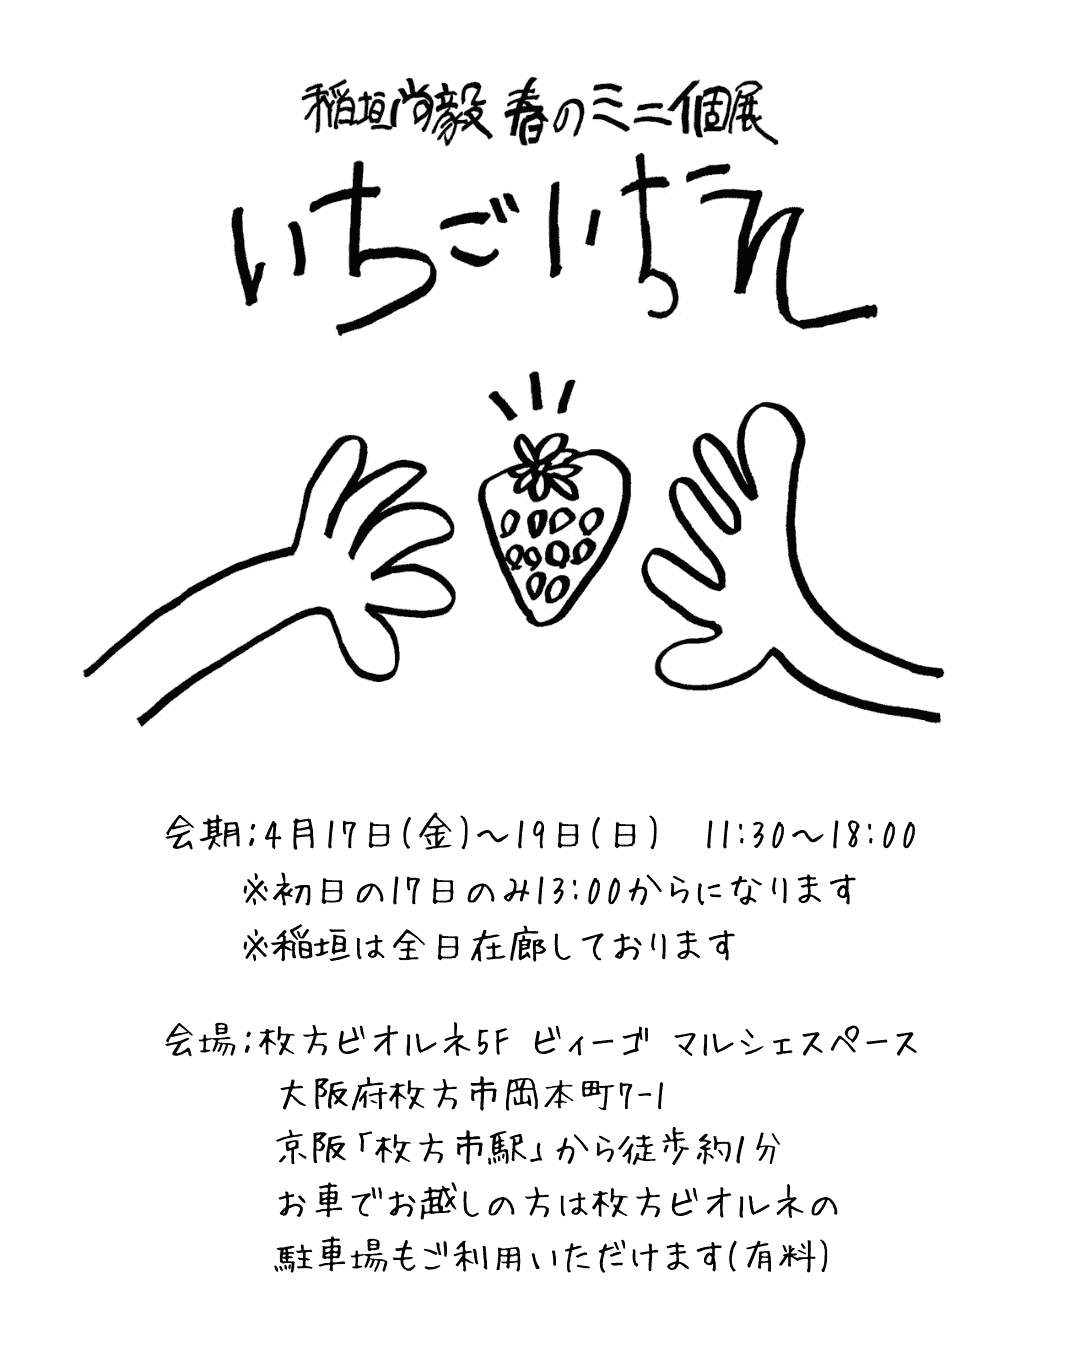 稲垣尚毅 春のミニ個展
いちごいちえ
会期:4月17日(金)~19日(日) 11:30~18:00
※初日の17日のみ13:00からになります
※稲垣は全日在廊しております
会場:枚方ビオルネ5F ビィーゴ マルシェスペース
大阪府枚方市岡本町7-1
京阪「枚方市駅」から徒歩約1分
お車でお越しの方は枚方ビオルネの
駐車場もご利用いただけます(有料)